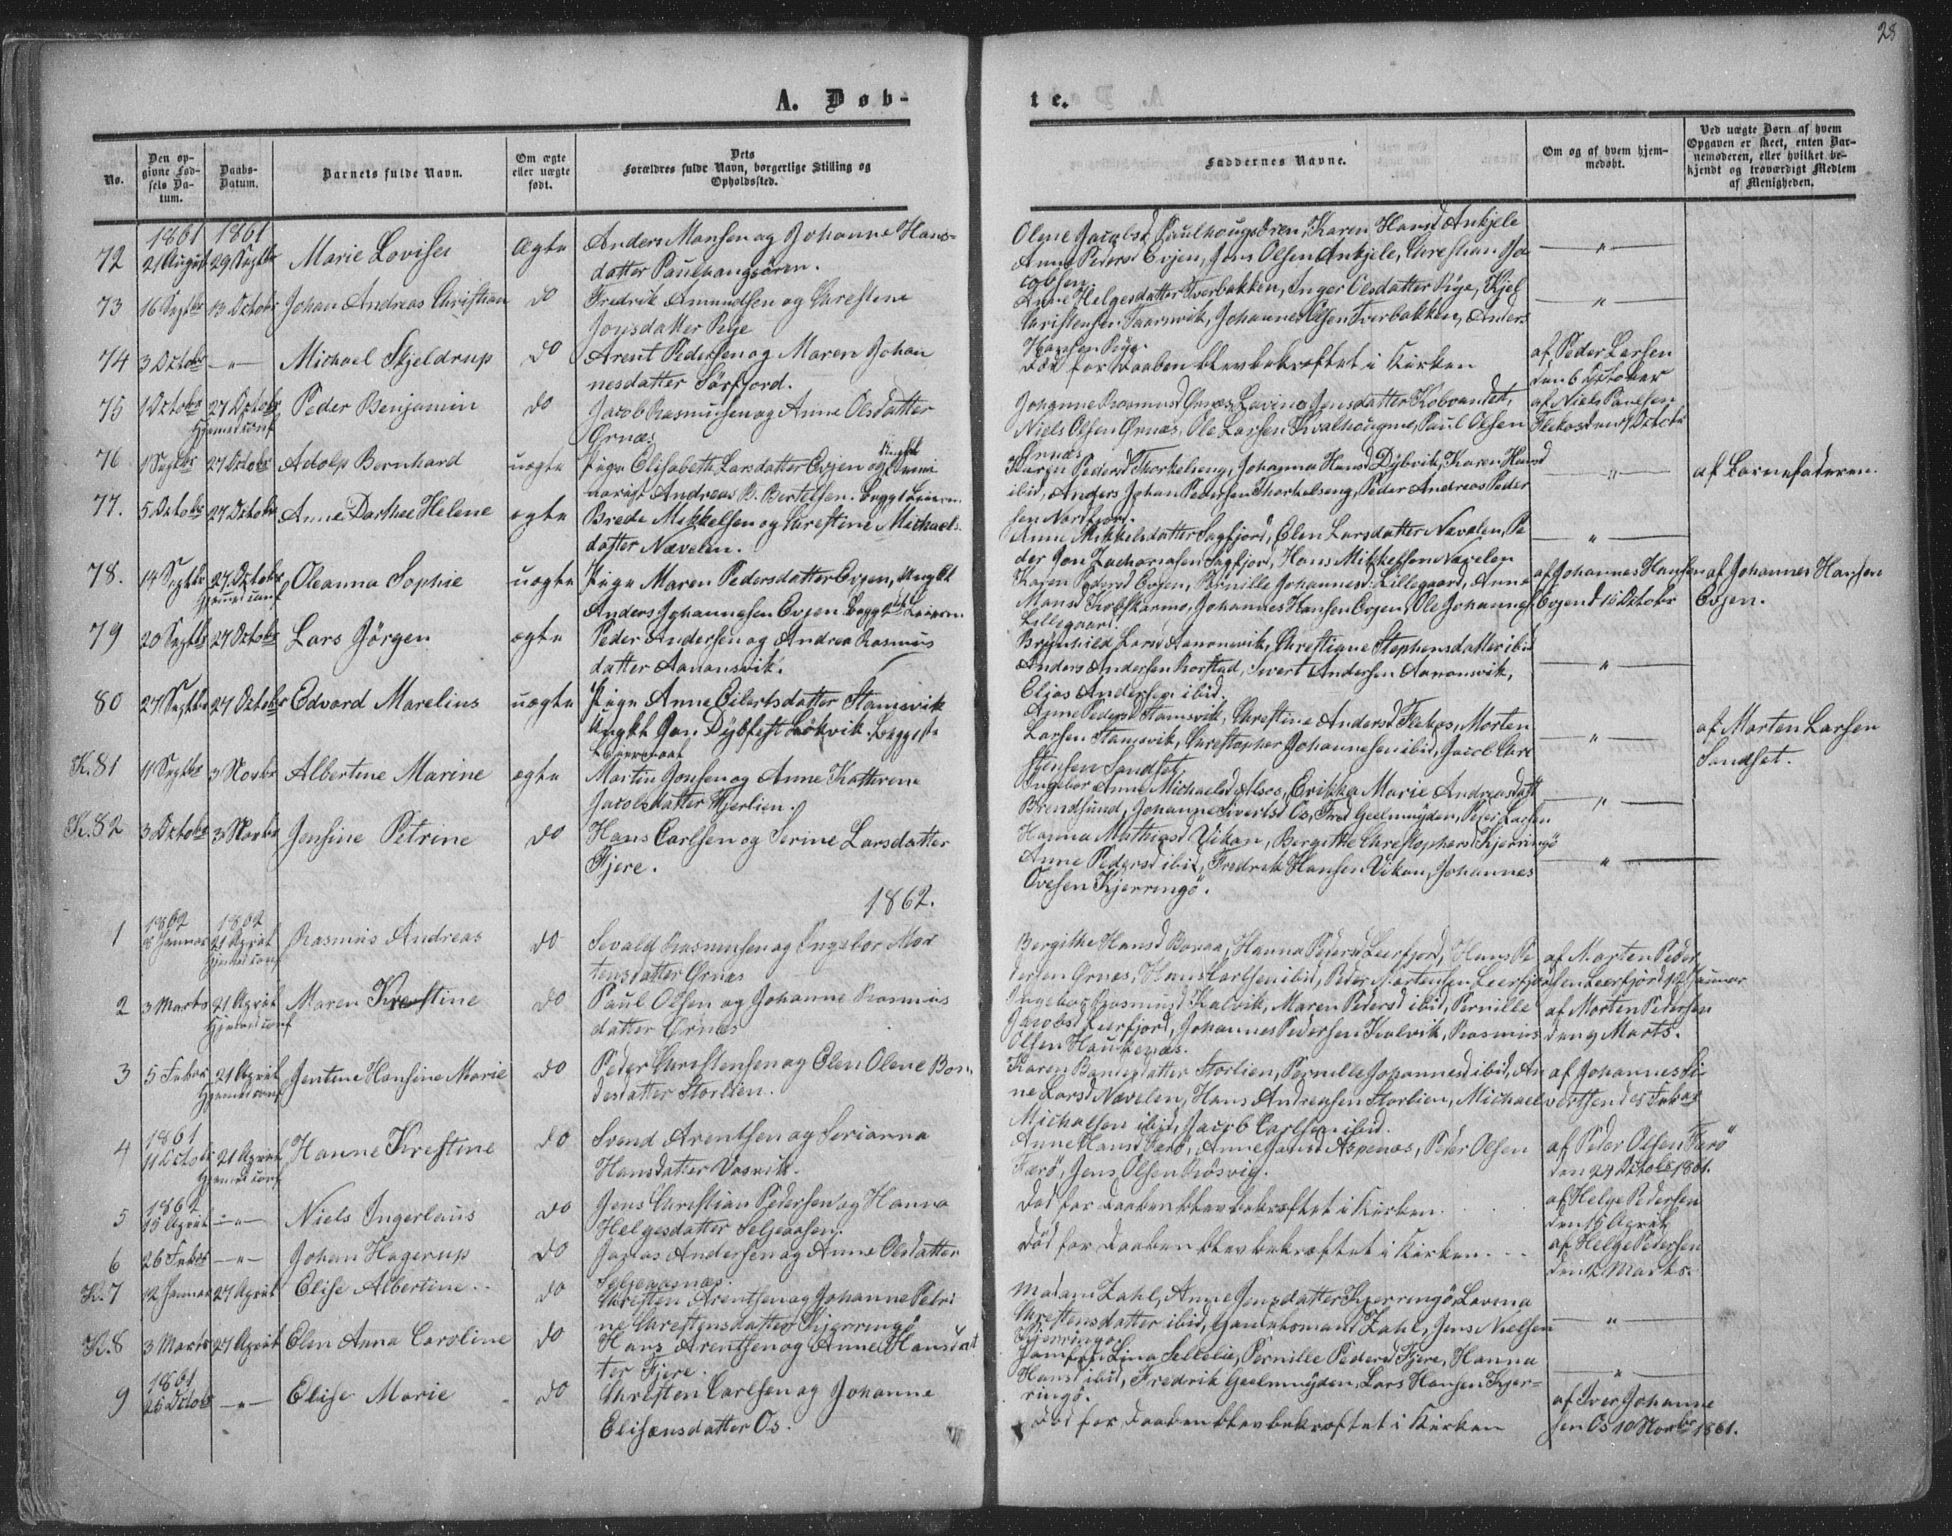 28
A. Døb-
te.
No.
Den opgivne Fødsels Datum.
Daabs-Datum.
Barnets fulde Navn.
Om ægte eller uægte født.
Dets Forældres fulde Navn, borgerlige Stilling og Opholdssted.
Faddernes Navne.
Om og af hvem hjemmedøbt.
Ved uægte Børn af hvem Opgaven er skeet, enten Barnemoderen, eller hvilket bekjendt og troværdigt Medlem af Menigheden.
1861 1861
72 21 August 29 Septbr Marie Lovise Ægte Anders Monsen og Johanne Hans-
datter Paulhaugsøren.
Olene Jacobsd Paulhougsøren, Karen Hansd Ankjele
Anne Pedersd Evjen, Jens Olsen Ankjele, Christian Ja-
cobsen
73 16 Septbr 13 Octobr Johan Andreas Christian do Fredrik Amundsen og Chrestene
Jonsdatter Røye
Anne Helgesdatter Tverbakken, Inger Olsdatter Røye, Kjel
Christensen Taarnvik, Johannes Olsen Tverbakken, Anders
Hansen Røye.
74 3 Octobr — " — Michael Skjeldrup do Arent Pedersen og Maren Johan
nesdatter Sørfjord.
Död før Daaben blev bekræftet i Kirken
af Peder Larsen
den 6 October
75 1 Octobr 27 Octobr Peder Benjamin do Jacob Rasmusen og Anne Olsdatter
Hjemed conf
Ørnæs
Johanne Rasmusd Ørnæs, Lavina Jensdatter Kobvandet,
Niels Olsen Ørnæs, Ole Larsen Kvalhougmo, Paul Olsen
Ørnæs
af Niels Paulsen
76 1 Septbr 27 Octobr Adolp Bernhard uægte Pige Elisabeth Larsdatter Evjen og Ungkl
Andreas B. Bertelsen. Begges Leierm.
Karen Pedersd Thorkelseng, Johanna Hansd Dybvik, Karen Hansd
ibid, Anders Johan Pedersen Thorkelseng, Peder Andreas Peder
sen Nordfjord.
af Barnefaderen.
77. 5 Octobr 27 Octobr Anne Dorthee Helene ægte Brede Mikkelsen og Chrestine Michaels
datter Nævelen.
Anne Mikkelsdatter Sagfjord, Elen Larsdatter Nævelen, Pe
der Jon Zachariasen Sagfjord, Hans Mikkelsen Nævelen
78. 14 Septbr 27. Octobr Oleanna Sophie uægte Pige Maren Pedersdatter Evjen, Ungkl
Hjemed conf
Anders Johannesen Evjen Begges Leierm
Karen Pedersd Evjen, Pernille Johannesd Lillegaard, Anne
Mansd Kobskarmo, Johannes Hansen Evjen, Ole Johannes
Lillegaard.
af Johannes Hansen
Evjen d 15 Octobr
af Johannes Hansen
Evjen.
79 20 Septbr 27 Octobr Lars Jörgen ægte Peder Andersen og Andrea Rasmus
datter Aanonsvik.
Brynhild Larsd Aanonsvik, Chrestiane Stephensdatter ibid
Anders Andersen Rorstad, Sivert Andersen Aanonsvik,
Elias Andersen ibid.
80 27 Septbr 27 Octobr Edvard Marelius uægte Pige Anne Eilertsdatter Stamsvik
Ungkl Jon Dybfest Løkvik. Begges
Leiermaal
Anne Pedersd Stamsvik, Chrestine Andersd Fakos, Morten
Larsen Stamsvik, Chrestopher Johannesen ibid, Jacob Chre
stensen Sandset.
af Morten Larsen
Sandset.
K. 81 11 Septbr 3 Novbr Albertine Marine ægte Martin Jonsen og Anne Kathrene
Jacobsdatter Fjerlien.
Ingebor Anna Michaelsd Alsos, Erikka Marie Andreasdatt
Brendsund, Johanne Sivertsd Os, Fred Geelmuyden, Peter Larsen
K. 82 3 Octobr 3 Novbr Jensine Petrine do Hans Carlsen og Serine Larsdatter
Fjere.
Hanna Mathiasd Vikan, Bergithe Chrestophersd Kjerringö
Anne Pedersd ibid, Fredrik Hansen Vikan, Johannes
Ovesen Kjerringö.
1862.
1862 1862
1 8 Januar 21 April Rasmus Andreas do Sevald Rasmusen og Ingebor Mor
Hjemed conf
tensdatter Ørnæs
Bergithe Hansd Bonaa, Hanna Pedersd Leerfjord, Hans Pe
dersen Ørnes, Hans Carlsen ibid, Peder Mortensen Leerfjord
af Morten Peder
sen Leerfjord 12 Januar
2 3 Marts 21 April Maren Krestine do Paul Olsen og Johanne Rasmus
Hjemed conf
datter Ørnæs
Ingebor Rasmusd Kalvik, Maren Pedersd ibid, Pernille
Jacobsd Leerfjord, Johannes Pedersen Kalvik, Rasmus
Olsen Haukenæs.
af Morten Pedersen
den 9 Marts.
3 5 Febr 21 April Jentine Hansine Marie do Peder Chrestensen og Elen Olene Bon
Hjemed conf
desdatter Storlien.
Karen Bondesdatter Storlien, Pernille Johannesd ibid, An
ne Larsd Nævelen, Hans Andreasen Storlien, Michael
Michalsen ibid, Jacob Carlsen ibid.
af Johannes Si
vertsen d 25 Febr
1861
4 11 Octobr 21 April Hanne Krestine do Svend Arentsen og Serianna
Hjemed conf
Hansdatter Vasvik.
Anne Hansd Farö, Anne Jonsd Aspenæs, Peder Olsen
Farö, Jens Olsen Rösvig.
af Peder Olsen Farö
den 24 Octobr 1861.
1862
5 15 April — " — Niels Ingerlaus do Jens Christian Pedersen og Hanna
Helgesdatter Seljeaasen.
Död for Daaben blev bekræftet i Kirken.
af Helge Pedersen
den 15 April
6 26 Febr — " — Johan Hagerup do Jonas Andersen og Anne Olsdatter
Seljeaasnæs.
Död for Daaben blev bekræftet i Kirken.
af Helge Pedersen
den 2 Marts.
K. 7 12 Januar 27 April Elise Albertine do Chresten Arentsen og Johanne Petri
ne Chrestensdatter Kjerringö
Madam Zahl, Anne Jensdatter Kjerringö, Lavina
Chrestensdatter ibid, Handelsmand Zahl, Jens Nielsen
Kjerringö.
K. 8 3 Marts 27 April Elen Anna Caroline do Hans Arentsen og Anne Hansdat
ter Fjere.
Jomfru Lina Sellelie, Pernille Pedersd Fjere, Hanna
Hansd ibid, Fredrik Geelmuyden, Lars Hansen Kjer-
ringö.
1861
9 25 Octobr — " — Elise Marie do Chresten Carlsen og Johanne
Elisæusdatter Os.
Död for Daaben blev bekræftet i Kirken
af Iver Johanne
sen Os 10 Novbr 1861.